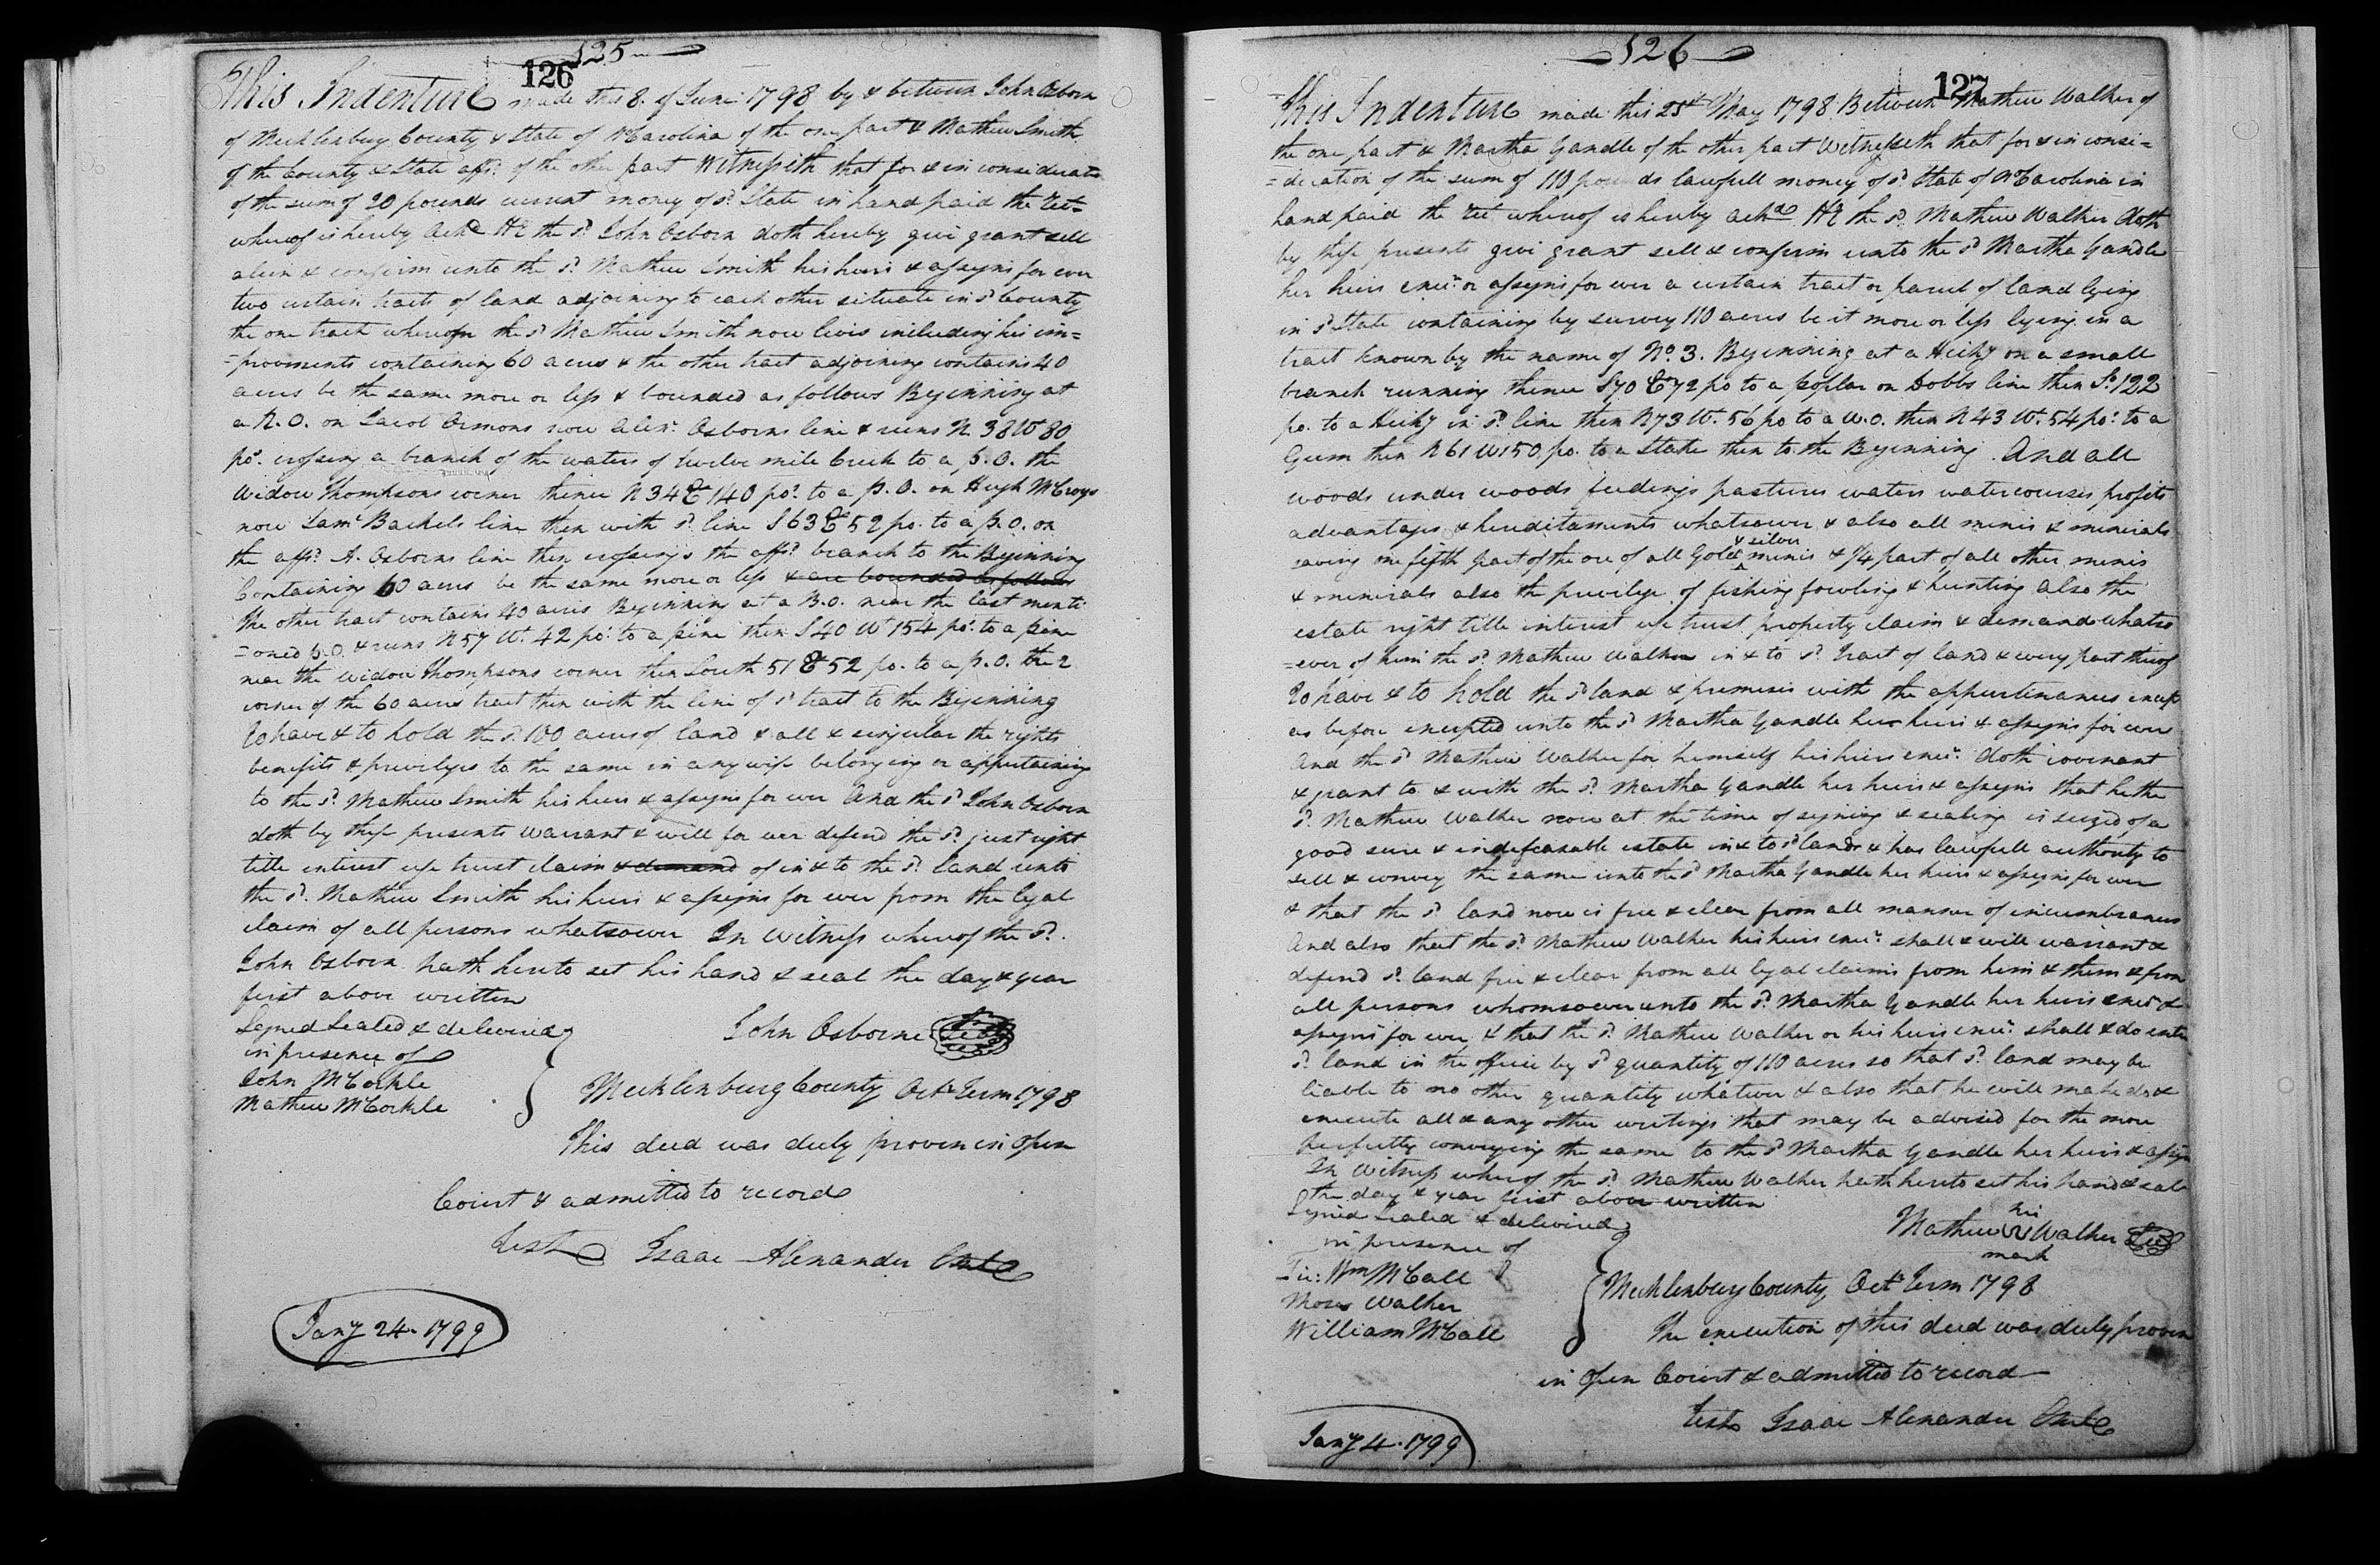 125
126
This Indenture made this 8. of June 1798 by & between John Osborn
of Mecklenburg County & State of N Carolina of the one part & Mathew Smith
of the County & State affs.d of the other part Witnesseth that for & in consideratn
of the sum of 20 pounds current money of s.d State in hand paid the rec.t
whereof is hereby ackd HE the s.d John Osborn doth hereby give grant sell
alien & confirm unto the s.d Mathew Smith his heirs & assigns for ever
two certain tracts of land adjoining to each other situate in s.d County
the one tract whereon the s.d Mathew Smith now lives including his im=
=provments containing 60 acres & the other tract adjoining contains 40
acres be the same more or less & bounded as follows Beginning at
a R.O. on Jacob Ormons now Alex.r Osborns line & runs N. 38 W 80
po.s crossing a branch of the waters of twelve mile Creek to a p.O. the
Widow Thompsons corner thence N 34 E 140 po.s to a p.O. on Hugh McCroys
now Sam.l Backels line then with s.d line S 63 E 52 po. to a p.O. on
the affs.d A. Osborns line then crossings the affs.d branch to the Beginning
Containing 60 acres be the same more or less & are bounded as follows
The other tract contains 40 acres Beginning at a B.O. near the last menti
=oned p.O. & runs N 57 W.t 42 po.s to a pine then S 40 W.t 154 po.s to a pine
near the widow Thompsons corner then South 51 E 52 po. to a p.O. the 2
corner of the 60 acres tract then with the line of s.d tract to the Beginning
To have & to hold the s.d 100 acres of land & all & singular the rights
benefits & priveliges to the same in any wise belonging or appertaining
to the s.d Mathew Smith his heirs & assigns for ever And the s.d John Osborn
doth by these presents warrant & will for ever defend the s.d just right
title interest use trust claim & demand of in & to the s.d land unto
the s.d Mathew Smith his heirs & assigns for ever from the legal
claim of all persons whatsoever In Witness whereof the s.d
John Osborn hath hereto set his hand & seal the day & year
first above written
Signed Sealed & delivered
in presence of
John McCorkle
Mathew McCorkle
John Osborne Seal
Mecklenburg County Oct.r Term 1798
This deed was duly proven in open
Court & admitted to record
Test Isaac Alexander
Jany 24. 1799
126
127
This Indenture made this 25th May 1798 Between Mathew Walker of
the one part & Martha Yandle of the other part Witnesseth that for & in consi=
=deration of the sum of 110 pounds lawfull money of s.d State of N Carolina in
hand paid the rec.t whereof is hereby ackd HE the s.d Mathew Walker doth
by these presents give grant sell & confirm unto the s.d Martha Yandle
her heirs exec.rs or assigns for ever a certain tract or parcel of land lying
in s.d State containing by survey 110 acres be it more or less lying in a
tract known by the name of No. 3. Beginning at a Hicky on a small
branch running thence S 70 E 72 po to a poplar on Dobbs line then S.o 122
po. to a Hicky in s.d line then N 73 W.t 56 po to a W.O. then N 43 W.t 54 po.s to a
Gum then N 61 W 150 po. to a Stake then to the Beginning. And all
woods under woods feedings pastures waters watercourses profits
advantages & hereditaments whatsoever & also all mines & minerals
saving one fifth part of the ore of all Gold & silver mines & 1/4 part of all other mines
& minerals also the privilege of fishing fowling & hunting also the
estate right title interest use trust property claim & demand whatso
=ever of him the s.d Mathew Walker in & to s.d tract of land & every part thereof
To have & to hold the s.d land & premises with the appurtenances except
as before excepted unto the s.d Martha Yandle her heirs & assigns for ever
And the s.d Mathew Walker for himself his heirs exec.rs doth covenant
& grant to & with the s.d Martha Yandle her heirs & assigns that he the
s.d Mathew Walker now at the time of signing & sealing is seized of a
good sure & indefeasable estate in & to s.d lands & has lawfull authority to
sell & convey the same unto the s.d Martha Yandle her heirs & assigns for ever
& that the s.d land now is free & clear from all manner of incumbrances
And also that the s.d Mathew Walker his heirs exec.rs shall & will warrant &
defend s.d land free & clear from all legal claims from him & them & from
all persons whomsoever unto the s.d Martha Yandle her heirs exec.rs &
assigns for ever, & that the s.d Mathew Walker or his heirs exec.rs shall & do enter
s.d land in the office by s.d quantity of 110 acres so that s.d land may be
liable to no other quantity whatever & also that he will make do &
execute all & any other writings that may be advised for the more
perfectly conveying the same to the s.d Martha Yandle her heirs & assigns
In Witness whereof the s.d Mathew Walker hath hereto set his hand & seal
the day & year first above written
Signed Sealed & delivered
in presence of
Wm McCall
Moses Walker
William McCall
Mathew his mark Walker Seal
Mecklenburg County Oct.r Term 1798
The execution of this deed was duly proven
in open Court & admitted to record
Test Isaac Alexander
Jany 4. 1799